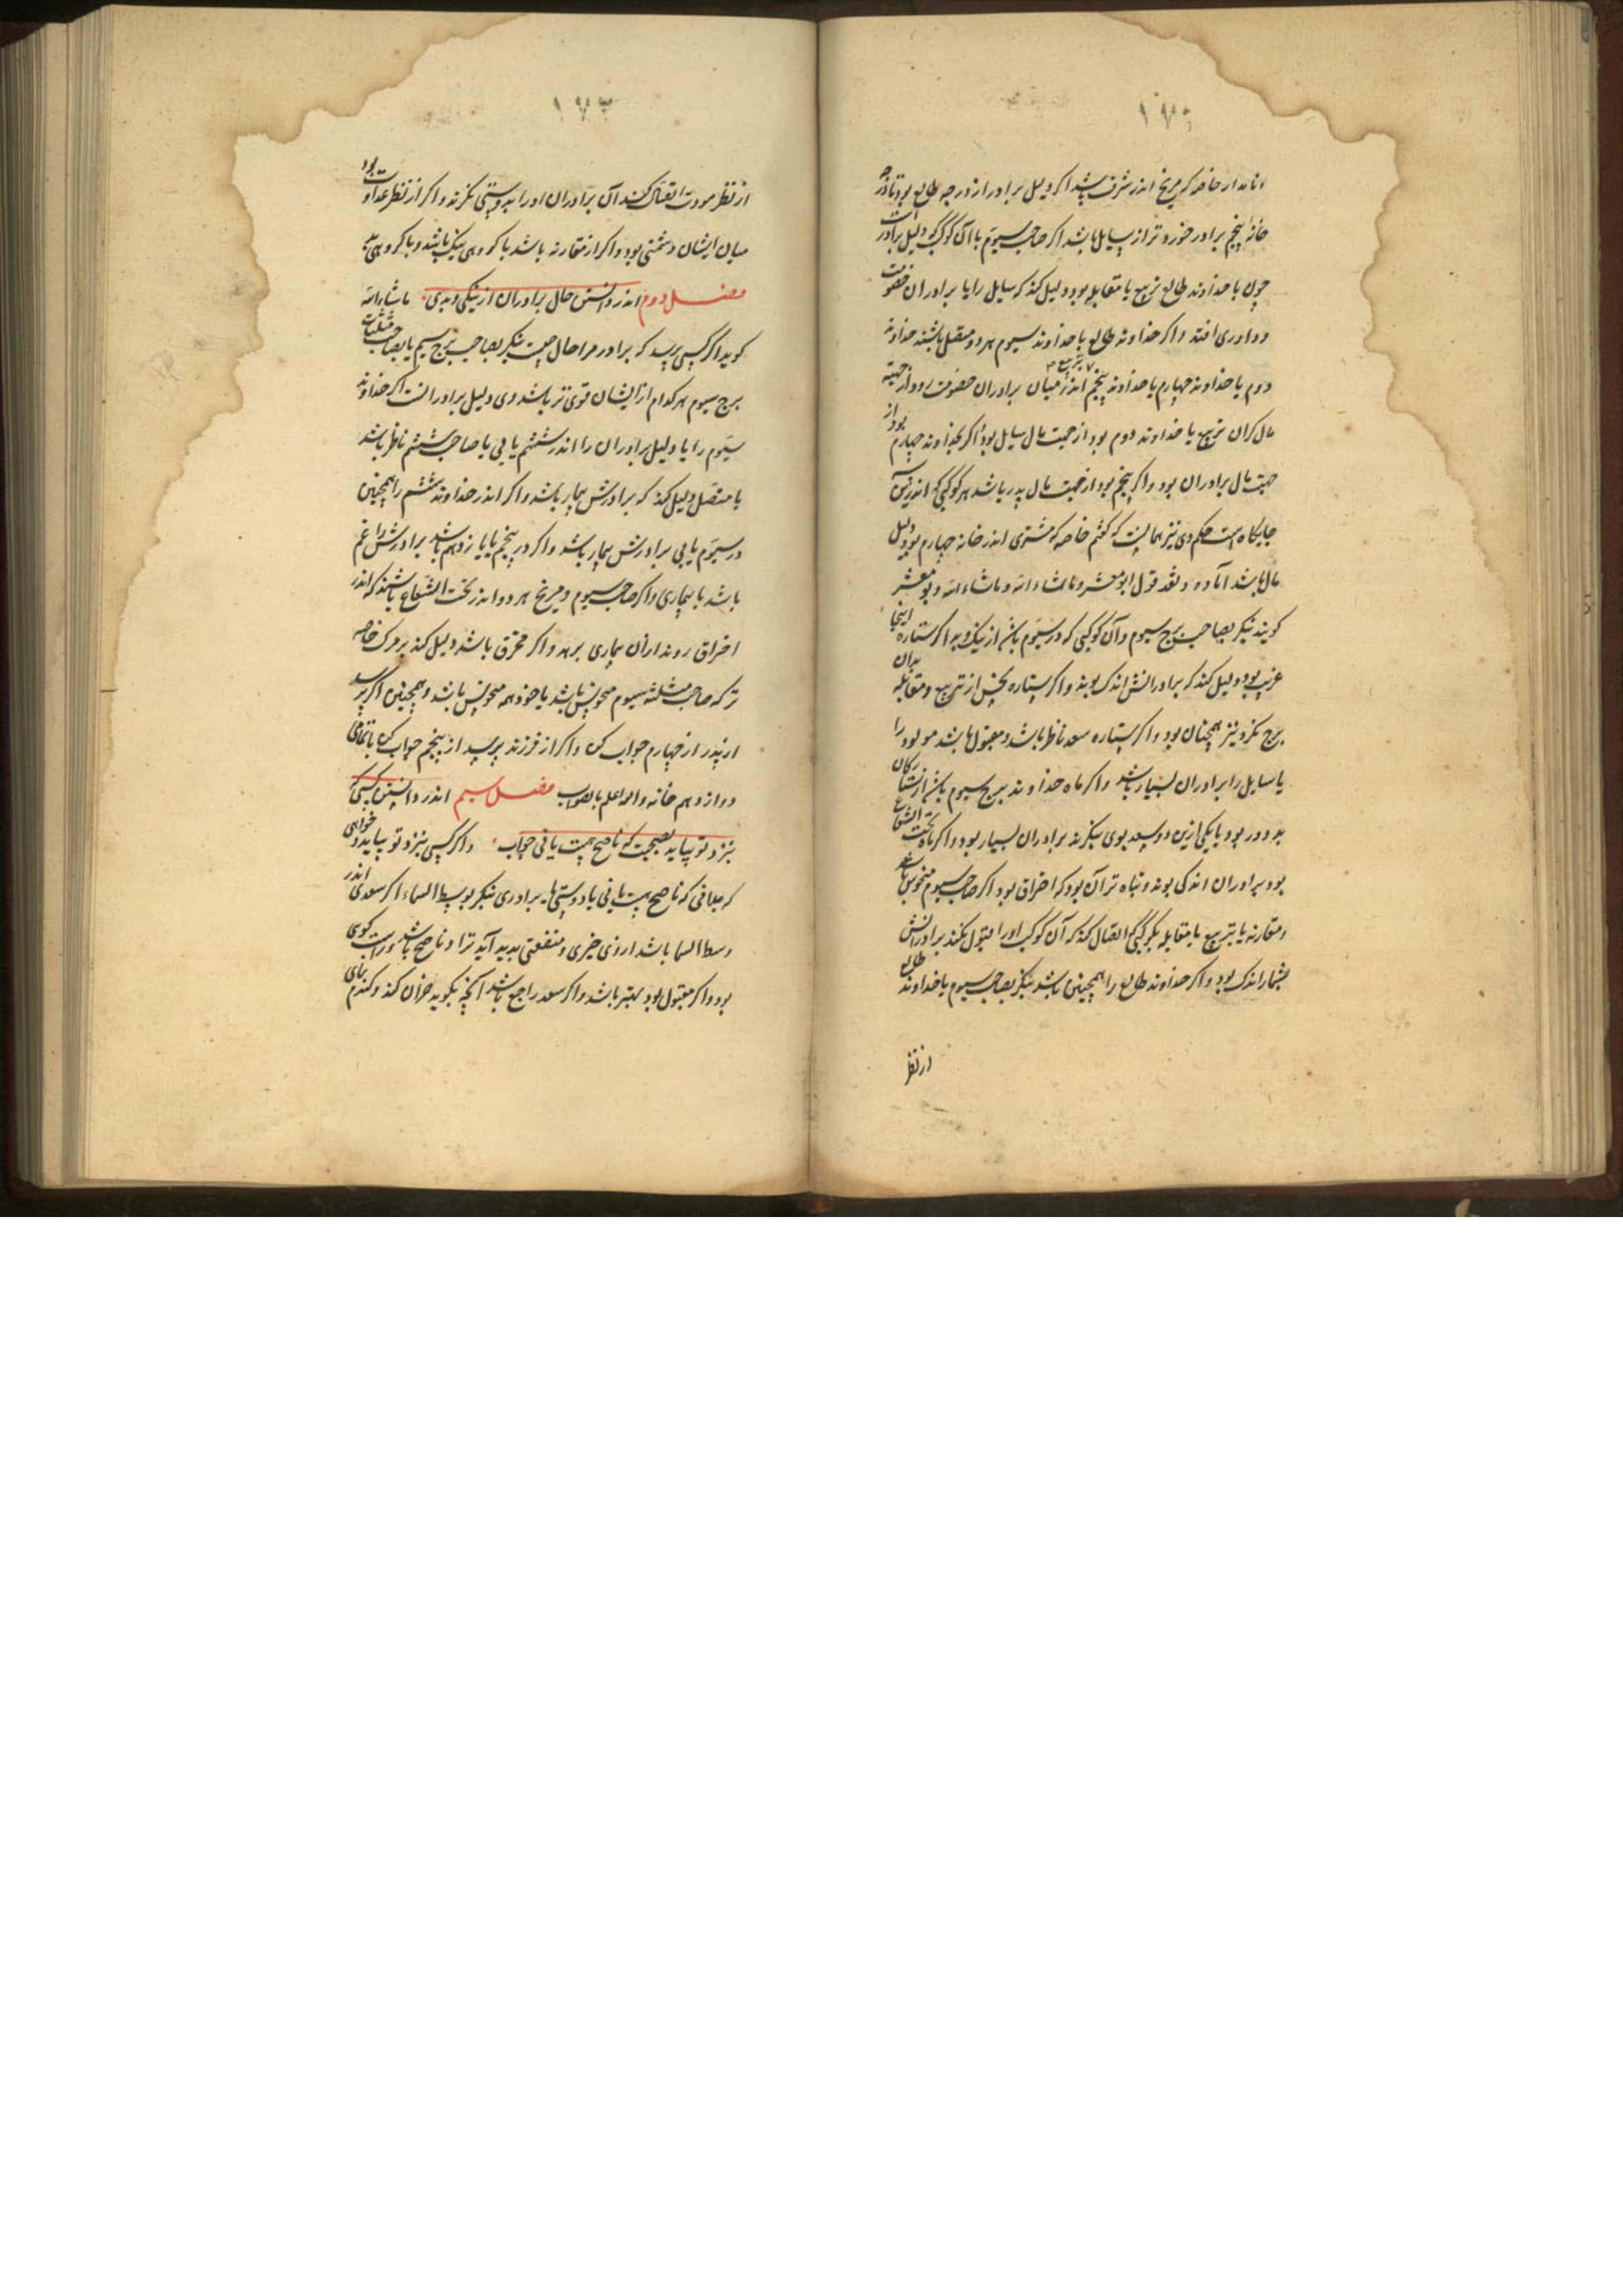 خاصه که مریخ اندر شرف باشد اگر دلیل برادر از درجه طالع بود تا درجه
خانه پنجم برادر خورد تر از سایل باشد اگر صاحب سیوم با آن کوکب که دلیل برادر است
چون با خداوند طالع تربیع یا مقابله بود دلیل کند که سایل را با برادران خصومت
و داوری افتد و اگر خداوند طالع با خداوند سیوم هر دو متصل باشند خداوند
دوم یا خداوند چهارم یا خداوند پنجم بتربیع اندر میان برادران خصومت رود از جهت
مال کر آن تربیع با خداوند دوم بود از جهت مال سایل بود و اگر بخداوند چهارم بود از
جهت مال برادران بود و اگر پنجم بود از جهت مال پدر باشد هر کوکبی که اندرین
جایکاه است حکم وی نیز همانست که کفتم خاصه که مشتری اندر خانه چهارم بود دلیل
مال باشد آماده و نقد قول ابو معشر و ماشاء الله و ماشاء الله و بو معشر
کویند بنکر بصاحب برج سیوم و آن کوکبی که در سیوم باشد از نیک و بد اگر ستاره اینجا
غریب بود دلیل کند که برادرانش اندک بوند و اگر ستاره نحس از تربیع و مقابله بدان
برج نکرد نیز همچنان بود و اگر ستاره سعد ناظر باشد و مقبول باشد مولود را
یا سایل را برادران بسیار باشد و اگر ماه خداوند برج سیوم باشد از ستارکان
بد دور بود یا یکی ازین دو سعد بوی نیکرند برادران بسیار بود و اگر ماه تحت الشعاع
بود برادران اندکی بوند و تباه تر آن بود که احتراق بود اگر صاحب سیوم منحوس باشد
و مقارنه یا بتربیع یا مقابله بکوکبی اتصال کند که آن کوکب او را قبول نکند برادرانش
بشمار اندک بود و اگر خداوند طالع را همچنین باشد بنکر بصاحب سیوم یا خداوند طالع
از نظر
۱۷۳
از نظر مودت اتصال کنند آن برادران او را بدوستی نکرند و اگر از نظر عداوت بود
میان ایشان دشمنی بود و اگر از مقارنه باشد با کروهی نیک باشد و با کروهی بد
فصل دوم اندر دانستن حال برادران از نیکی و بدی ماشاء الله
کوید اگر کسی پرسد که برادر مرا حال چیست بنکر بصاحب برج سیم یا بصاحب مثلثات
برج سیوم هر کدام از ایشان قوی تر باشد وی دلیل برادر است اگر خداوند
سیوم را یا دلیل برادران را اندر ششم یابی یا صاحب ششم ناظر باشد
یا متصل دلیل کند که برادرش بیمار باشد و اگر اندر خداوند ششم را همچنین
در سیوم یابی برادرش بیمار باشد و اگر در پنجم یا یازدهم باشد برادرش را غم
باشد یا بیماری و اگر صاحب سیوم و مریخ هر دو اندر تحت الشعاع باشند که اندر
احتراق روند از آن بیماری برهد و اگر محترق باشد دلیل کند بر مرک خاصه
تر که صاحب مثلثه سیوم منحوس باشد یا خود همه منحوس باشد و همچنین اگر پرسد
از پدر از چهارم جواب کن و اگر از فرزند پرسد از پنجم جواب کن تا بتمامی
دوازدهم خانه والله اعلم بالصواب فصل سیم اندر دانستن کسی که
بنزد تو بیاید بصحبت که ناصح هست یا نی جواب و اگر کسی بنزد تو بیاید و خواهی
که بدانی که ناصح هست یا نی یا دوستی یا برادری بنکر بوسط السماء اگر سعدی اندر
وسط السما باشد از وی خیری و منفعتی پدید آید ترا و ناصح باشد و راست کوی
بود و اگر مقبول بود بهتر باشد و اگر سعد راجع باشد آنچه بکوید خزان کند و کندم نمای